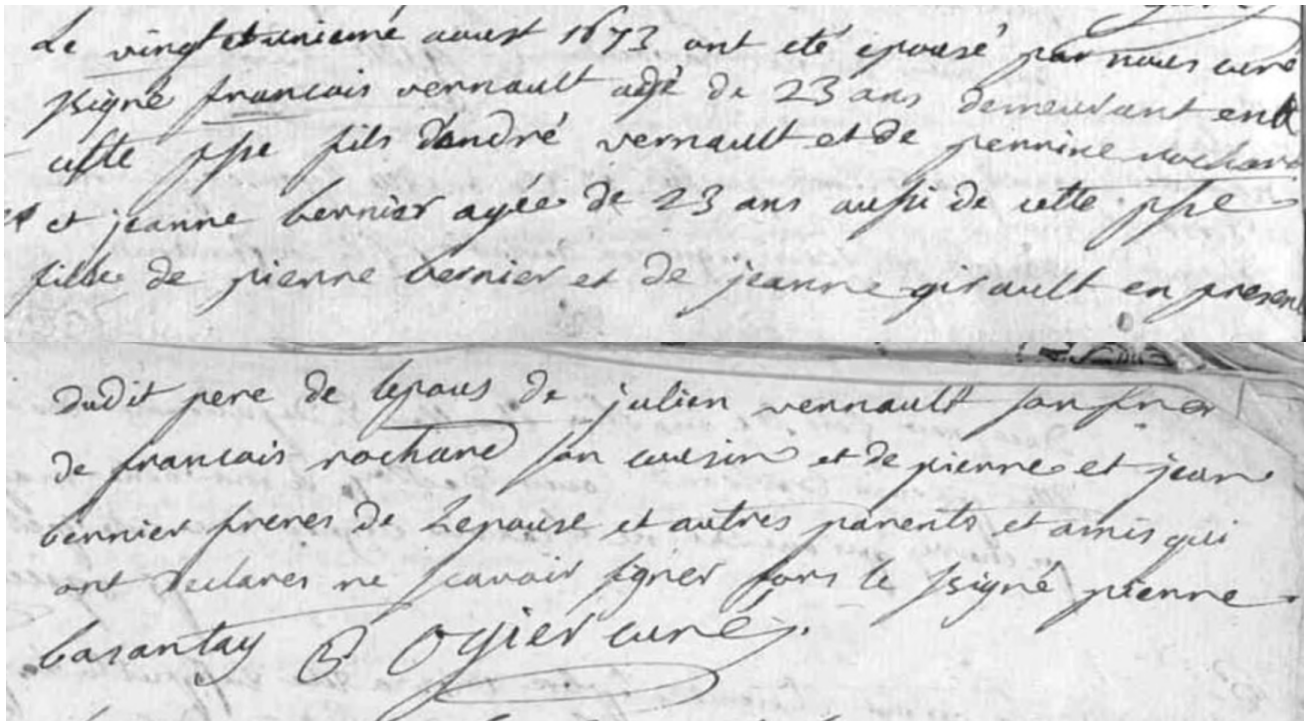 Le vingt et unieme aoust 1673 ont eté epousé par nous curé
ssigné francois vernault agé de 23 ans demeurant en
cette ppe fils dandré vernault et de perrine rochard
et jeanne bernier agée de 23 ans aussi de cette ppe
fille de pierre bernier et de jeanne girault en presen
dudit pere de lepous de julien vernault son frer
de francois rochard son cousin et de pierre et jean
bernier freres de Lepouse et autres parents et amis qui
ont declares ne scavoir signer fors le ssigné pierre
basantay
Ogier curé